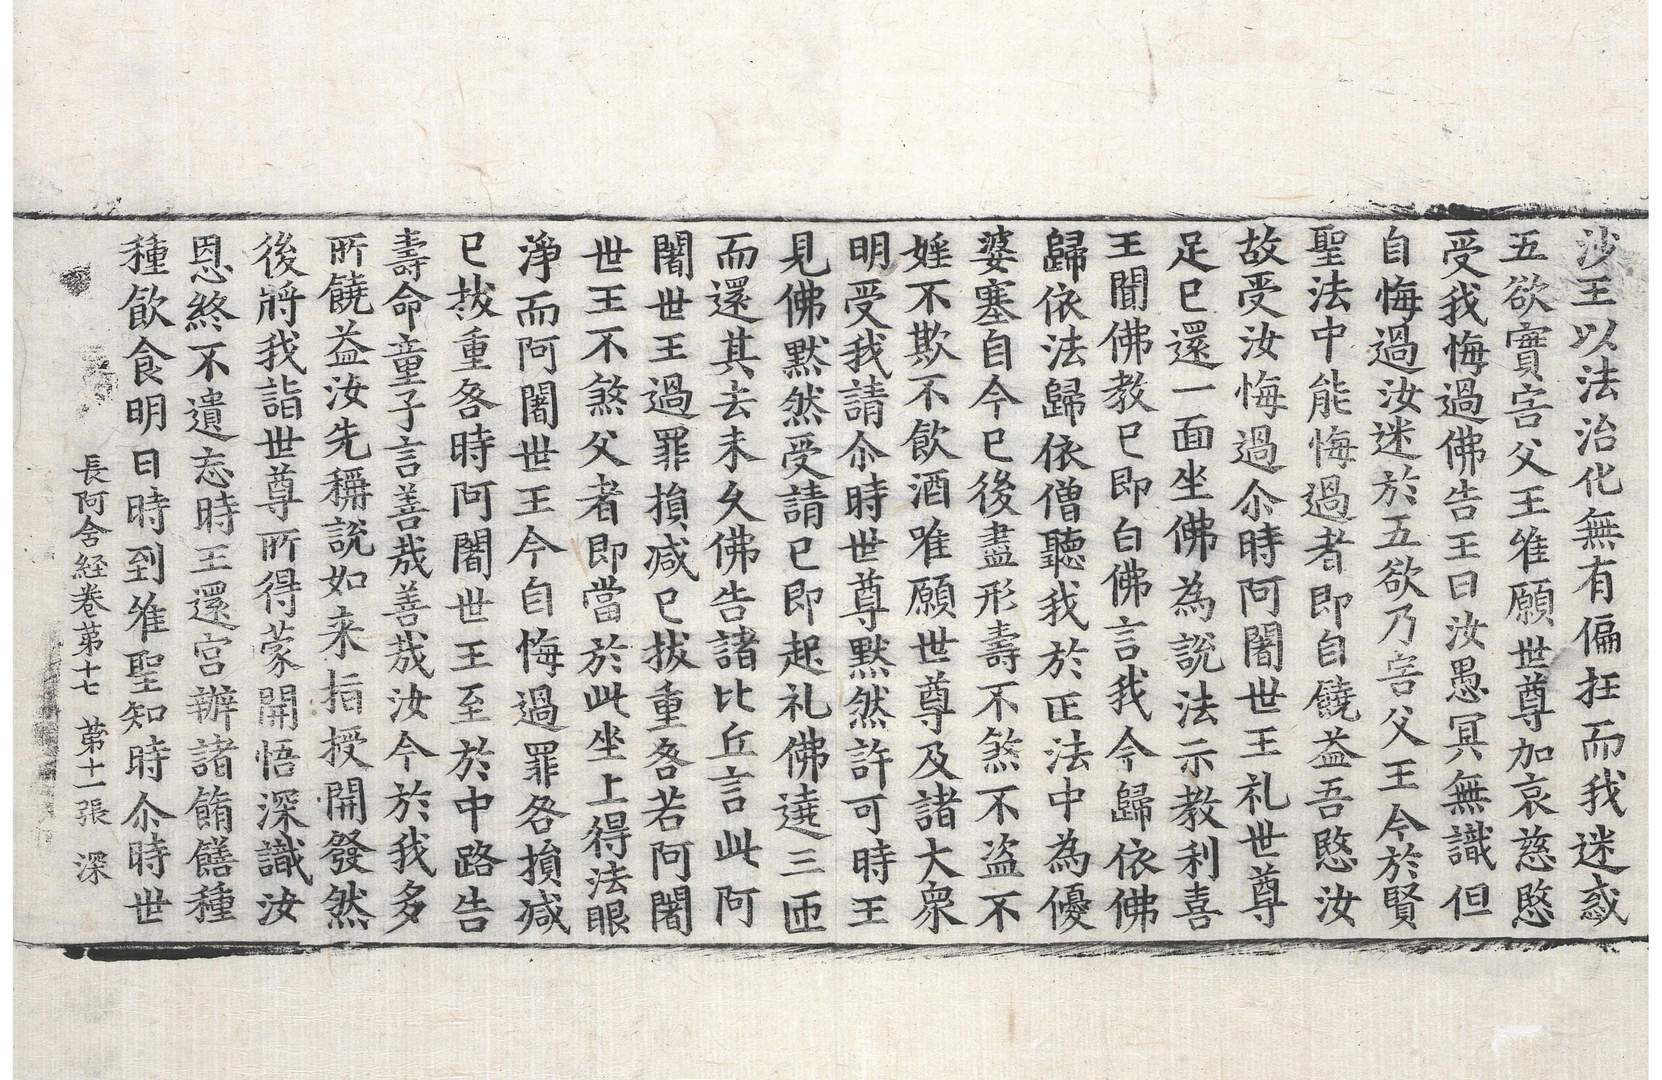 沙王以法治化無有偏抂而我迷惑
五欲實害父王唯願世尊加哀慈愍
受我悔過佛告王曰汝愚冥無識但
自悔過汝迷於五欲乃害父王今於賢
聖法中能悔過者即自饒益吾愍汝
故受汝悔過尒時阿闍世王礼世尊
足已還一面坐佛為說法示教利喜
王聞佛教已即白佛言我今歸依佛
歸依法歸依僧聽我於正法中為優
婆塞自今已後盡形壽不煞不盜不
婬不欺不飲酒唯願世尊及諸大衆
明受我請尒時世尊默然許可時王
見佛默然受請已即起礼佛遶三匝
而還其去未久佛告諸比丘言此阿
闍世王過罪損減已拔重咎若阿闍
世王不煞父者即當於此坐上得法眼
淨而阿闍世王今自悔過罪咎損減
已拔重咎時阿闍世王至於中路告
壽命童子言善哉善哉汝今於我多
所饒益汝先稱說如来指授開發然
後將我詣世尊所得蒙開悟深識汝
恩終不遺忘時王還宮辦諸餚饍種
種飲食明日時到唯聖知時尒時世
長阿含経卷苐十七 苐十一張 深